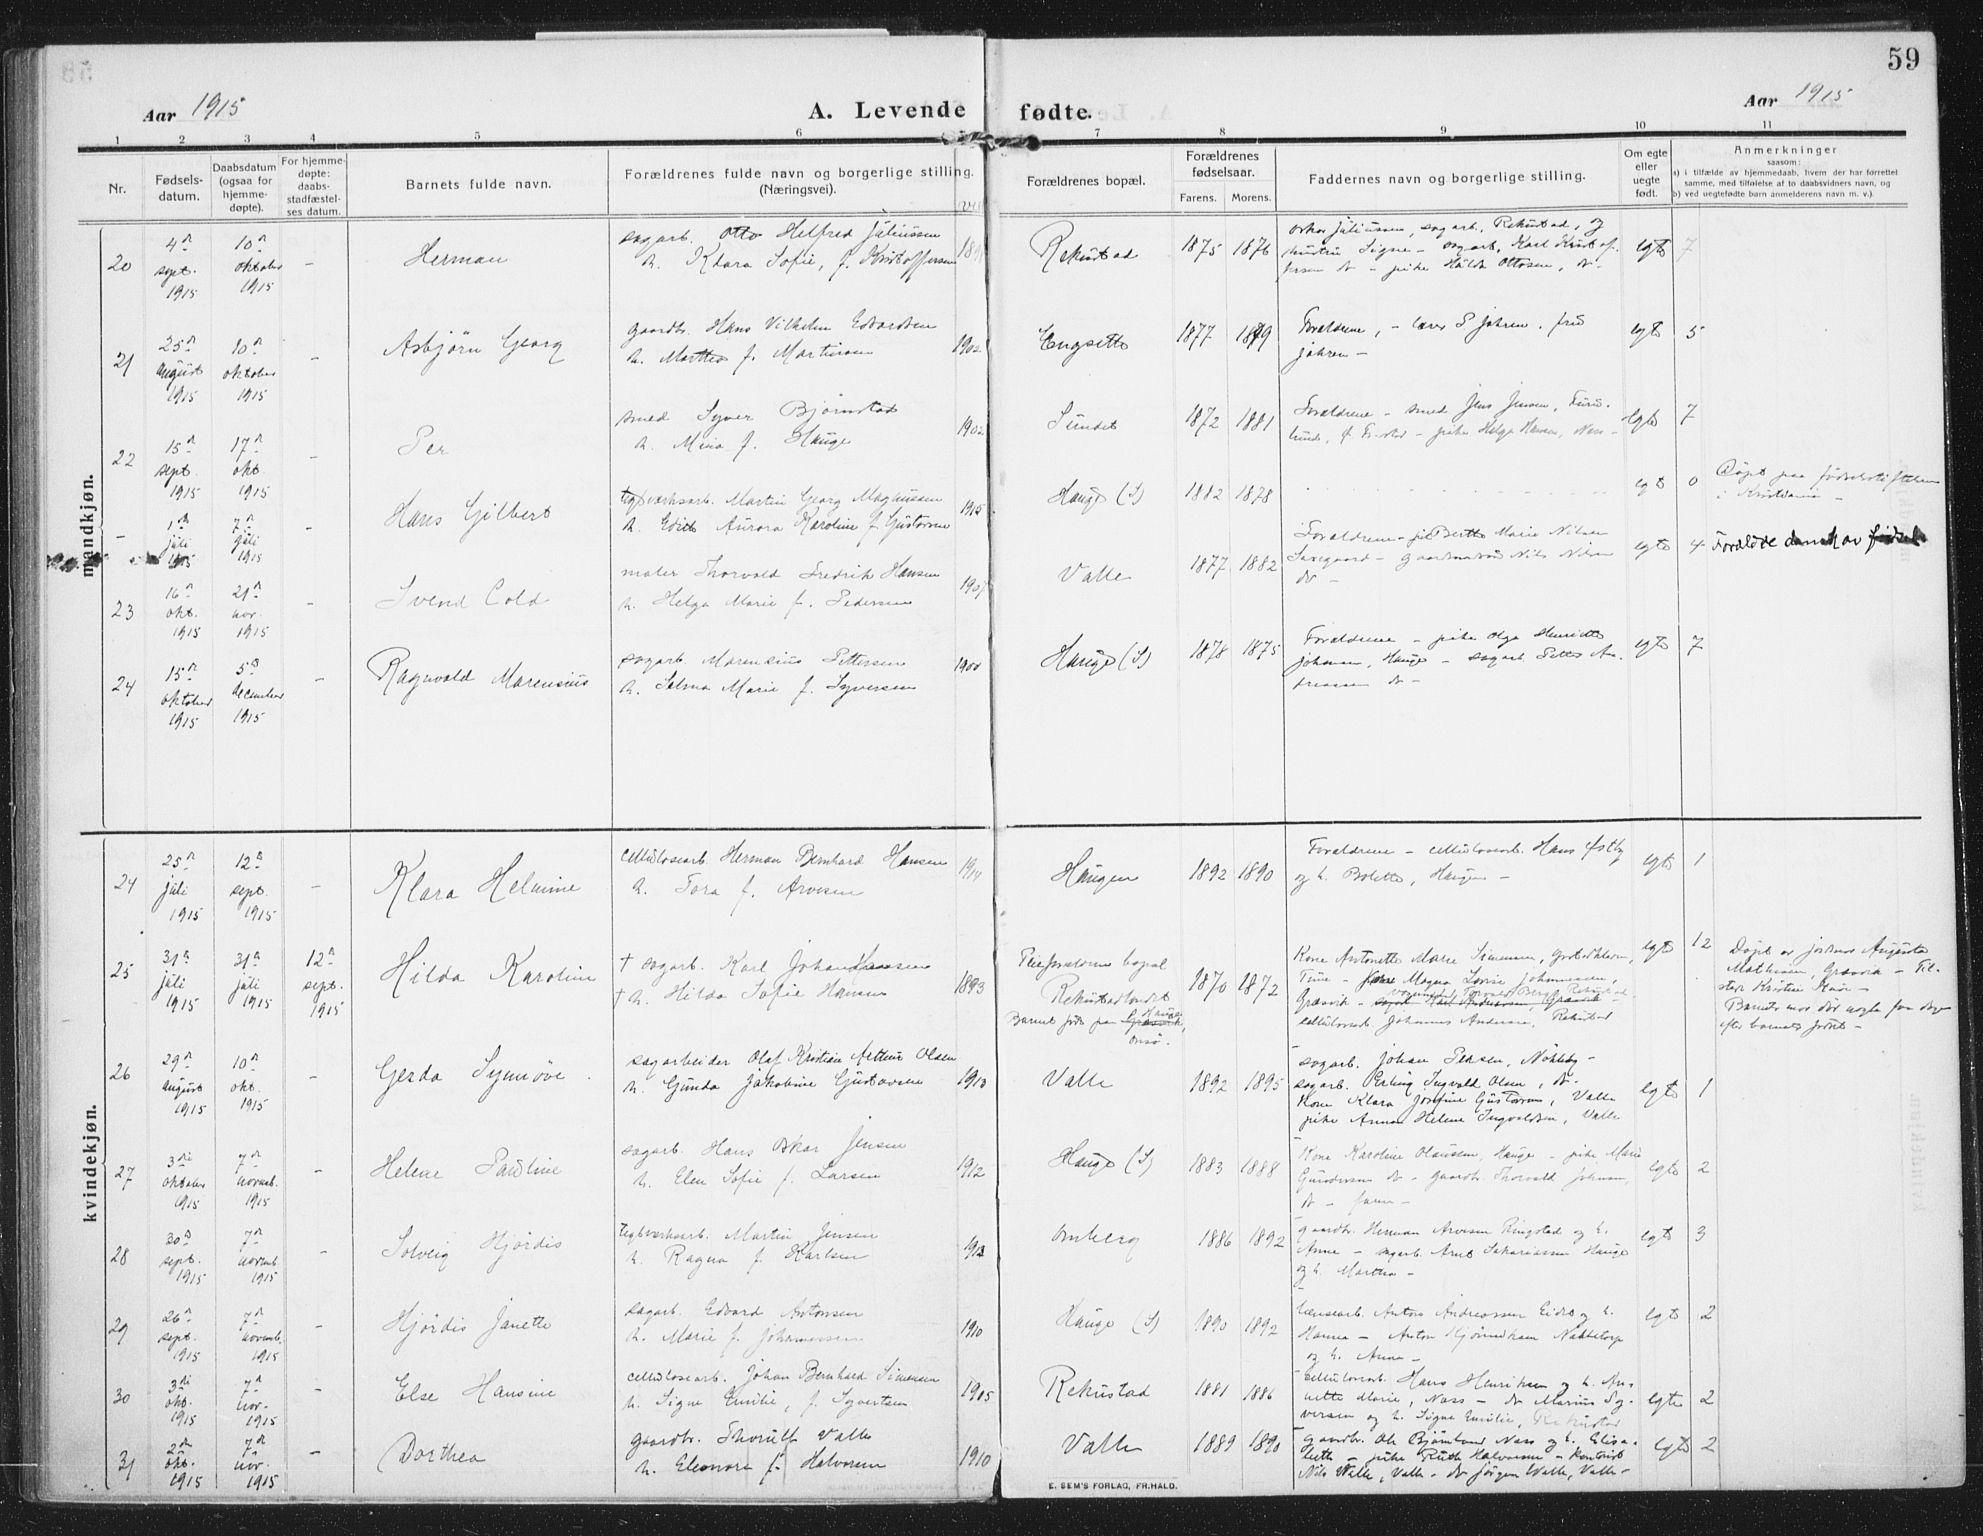 59
Aar 1915
A. Levende fødte.
Aar 1915
1 2 3 4 5 6 7 8 9 10 11
Nr.
Fødsels-
datum.
Daabsdatum
(ogsaa for
hjemme-
døpte).
For hjemme-
døpte:
daabs-
stadfæstel-
ses datum.
Barnets fulde navn.
Forældrenes fulde navn og borgerlige stilling.
(Næringsvei).
Forældrenes bopæl.
Forældrenes
fødselsaar.
Farens. Morens.
Faddernes navn og borgerlige stilling.
Om egte
eller
uegte
født.
Anmerkninger
saasom:
a) i tilfælde av hjemmedaab, hvem der har forrettet
samme, med tilføielse af to daabsvidners navn, og
b) ved uegtefødte barn anmelderens navn m. v.).
mandkjøn.
20
4de sept. 1915
10de oktober 1915
-
Herman
sagarb. Otto Helfred Juliussen
h. Klara Sofie, f. Kristoffersen
Rekustad
1875 1876
Juliussen, sagarb. Rekustad, og
hustru Signe - sagarb. Karl Kristof-
fersen
egte 7
21
25de august 1915
10de oktober 1915
-
Asbjörn Georg
gaardbr. Hans Vilhelm Edvardsen
h. Marthea f. Martinsen
1902
Engsette
1877 1879
Forældrene, - lærer P. Johren, fru
Johren -
egte 5
22
15de sept. 1915
17de okt. 1915
-
Per
smed Syver Björnstad
h. Mina f. Hauge
1902
Sundet
1872 1881
Forældrene - smed Jens Jensen, Furu-
lund, - pike Helga Hansen, Næss -
egte 7
-
1ste juli 1915
7de juli 1915
-
Hans Gilbert
teglverksarb. Martin Georg Magnussen
h. Edith Aurora Karoline f. Gustavsen
1915
Hauge (S)
1882 1878
egte 0
Döpt paa födselsstiftelsen
i Kristiania -
23
16de okt. 1915
21de nov. 1915
-
Svend Cold
maler Thorvald Fredrik Hansen
h. Helga Marie f. Pedersen
1907
Valle
1877 1882
Forældrene - Berthe Marie Nilsen
- gaardmand Nils Nilsen
do -
egte 4
24
15de oktober 1915
5te december 1915
-
Ragnvald Marensius
sagarb. Marensius Pettersen
h. Selma Marie f. Syversen
1900
Hauge (S)
1878 1875
Forældrene - pike Olga Henriette
Johansen, Hauge - sagarb. Petter An-
dreassen do -
egte 7
kvindekjøn.
24
25de juli 1915
12te sept. 1915
-
Klara Helmine
cellulosearb. Herman Bernhard Hansen
h. Tora f. Arvesen
Haugen
1892 1890
Forældrene - cellulosearb. Hans Østby
og h. Bolette, Haugen -
egte 1
25
31te juli 1915
31te juli 1915
12te sept. 1915
Hilda Karoline
† sagarb. Karl Johan Hansen
† h. Hilda Sofie Hansen
1893
Pleieforældrene bopæl
Rekustadlandet
Barnet født paa Hauge,
Onsö.
1870 1872
Kone Antonette Marie Simensen,
Tine - Magna Lovise Johannessen,
Græsvik -
cellulosearb. Johannes Andersen, Rekustad
egte 12
Döpt av jordmor Augusta
Mathisen, Græsvik -
Barnets mor döde nogle faa dage
efter barnets födsel -
26
29de august 1915
10de okt. 1915
-
Gerda Synnöve
sagarbeider Olaf Kristian Arthur Olsen
h. Gunda Jakobine Gustavsen
1913
Valle
1892 1895
sagarb. Johan Persen, Nökleby -
sagarb. Erling Ingvald Olsen, do -
Kone Klara Josefine Gustavsen, Valle
pike Anna Helene Ingvaldsen, Valle
egte 1
27
3die oktober 1915
7de novemb. 1915
-
Helene Pauline
sagarb. Hans Oskar Jensen
h. Elen Sofie f. Larsen
1912
Hauge (S)
1883 1888
Kone Karoline Olaussen, Hauge - pike Marie
Gundersen do - gaardbr. Thorvald Johnsen,
do - faren -
egte 2
28
30te sept. 1915
7de novemb. 1915
-
Solveig Hjördis
teglverksarb. Martin Jensen
h. Ragna f. Karlsen
1913
Omberg
1886 1892
gaardbr. Herman Arvesen Ringstad og h.
Anne - sagarb. Arnt Sakariassen Hauge
og h. Martha -
egte 3
29
26de sept. 1915
7de novemb. 1915
-
Hjördis Janette
sagarb. Edvard Antonsen
h. Marie f. Johannessen
1910
Hauge (S)
1890 1892
lænsearb. Anton Andreassen Eidet og h.
Hanna - Anton
og h. Anna -
egte 2
30
3die okt. 1915
7de nov. 1915
-
Else Hansine
cellulosearb. Johan Bernhard Simensen
h. Signe Emilie, f. Syvertsen
1915
Rekustad
1881 1886
cellulosearb. Hans Henriksen og h. An-
nette Marie, Næss - do Marius Sy-
versen og h. Signe Emilie, Rekustad
egte 2
31
2den okt. 1915
7de nov. 1915
-
Dorthea
gaardbr. Thorulf Valle
h. Eleonora f. Halvorsen
1910
Valle
1889 1890
gaardbr. Ole Björnland Næss og h. Elisa-
beth - pike Ruth Halvorsen - kontorist
Nils Walle, Valle - do Jörgen Walle, Valle -
egte 2
E. SEM'S FORLAG, FR.HALD.